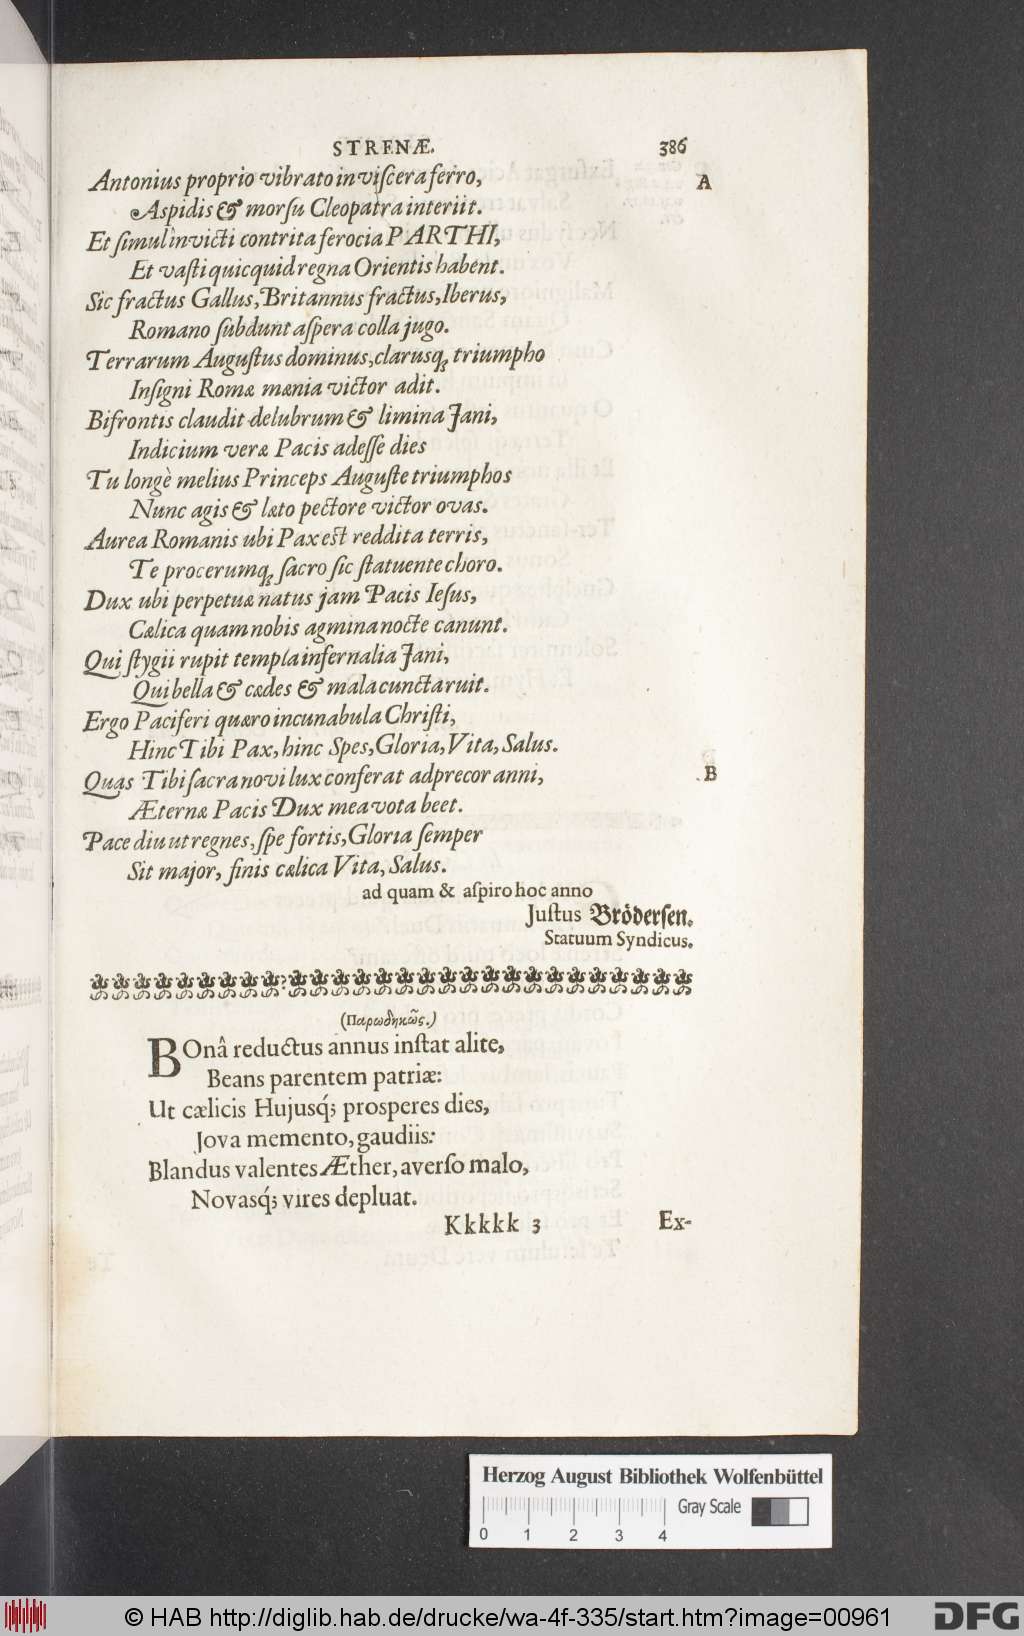 STRENÆ. 386
Antonius proprio vibrato in viſcera ferro, A
Aspidis & morſu Cleopatra interiit.
Et ſimul invicti contrita ferocia PARTHI,
Et vaſti quicquid regna Orientis habent.
Sic fractus Gallus, Britannus fractus, Iberus,
Romano ſubdunt aſpera colla jugo.
Terrarum Auguſtus dominus, clarusq; triumpho
Inſigni Romæ mænia victor adit.
Bifrontis claudit delubrum & limina Jani,
Indicium veræ Pacis adeſſe dies
Tu longè melius Princeps Auguſte triumphos
Nunc agis & læto pectore victor ovas.
Aurea Romanis ubi Pax est reddita terris,
Te procerumq; ſacro ſic ſtatuente choro.
Dux ubi perpetuæ natus jam Pacis Ieſus,
Cælica quam nobis agmina nocte canunt.
Qui ſtygii rupit templa infernalia Jani,
Qui bella & cædes & mala cuncta ruit.
Ergo Paciferi quæro incunabula Chriſti,
Hinc Tibi Pax, hinc Spes, Gloria, Vita, Salus.
Quas Tibi ſacra novi lux conferat adprecor anni, B
Æternæ Pacis Dux mea vota beet.
Pace diu ut regnes, ſpe fortis, Gloria ſemper
Sit major, finis cælica Vita, Salus.
ad quam & aſpiro hoc anno
Juſtus Brödersen.
Statuum Syndicus.
(Παρωδηκῶς.)
BOnâ reductus annus inſtat alite,
Beans parentem patriæ:
Ut cælicis Hujusq́; prosperes dies,
Jova memento, gaudiis:
Blandus valentes Æther, averſo malo,
Novasq́; vires depluat.
Kkkkk 3 Ex-
Herzog August Bibliothek Wolfenbüttel
Gray Scale
0 1 2 3 4
© HAB http://diglib.hab.de/drucke/wa-4f-335/start.htm?image=00961
DFG